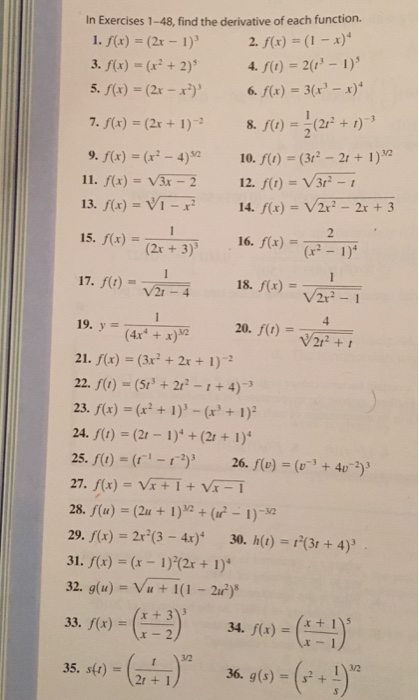 In Exercises 1–48, find the derivative of each function.
1. f(x) = (2x − 1)³ 2. f(x) = (1 − x)⁴
3. f(x) = (x² + 2)⁵ 4. f(t) = 2(t³ − 1)⁵
5. f(x) = (2x − x²)³ 6. f(x) = 3(x³ − x)⁴
7. f(x) = (2x + 1)⁻² 8. f(t) = 1/2 (2t² + t)⁻³
9. f(x) = (x² − 4)^(5/2) 10. f(t) = (3t² − 2t + 1)^(3/2)
11. f(x) = √(3x − 2) 12. f(t) = √(3t² − t)
13. f(x) = ∛(1 − x²) 14. f(x) = √(2x² − 2x + 3)
15. f(x) = 1/(2x + 3)³ 16. f(x) = 2/(x² − 1)⁴
17. f(t) = 1/√(2t − 4) 18. f(x) = 1/√(2x² − 1)
19. y = 1/(4x⁴ + x)^(3/2) 20. f(t) = 4/∛(2t² + t)
21. f(x) = (3x² + 2x + 1)⁻²
22. f(t) = (5t³ + 2t² − t + 4)⁻³
23. f(x) = (x² + 1)³ − (x³ + 1)²
24. f(t) = (2t − 1)⁴ + (2t + 1)⁴
25. f(t) = (t⁻¹ − t⁻²)³ 26. f(v) = (v⁻³ + 4v⁻²)³
27. f(x) = √(x + 1) + √(x − 1)
28. f(u) = (2u + 1)^(3/2) + (u² − 1)^(−3/2)
29. f(x) = 2x²(3 − 4x)⁴ 30. h(t) = t²(3t + 4)³
31. f(x) = (x − 1)²(2x + 1)⁴
32. g(u) = √(u + 1)(1 − 2u²)⁸
33. f(x) = ((x + 3)/(x − 2))³ 34. f(x) = ((x + 1)/(x − 1))⁵
35. s(t) = (t/(2t + 1))^(3/2) 36. g(s) = (s² + 1/s)^(3/2)